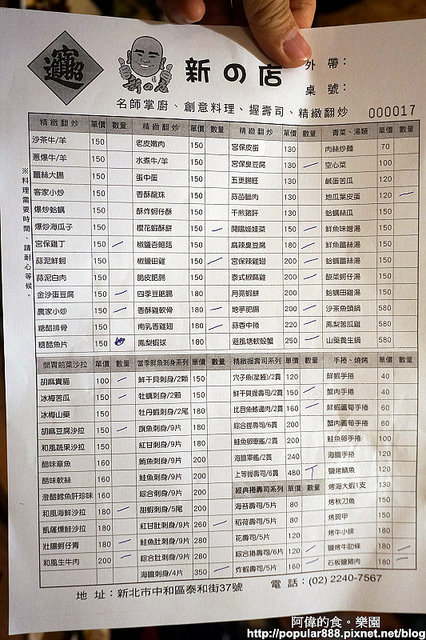 招財進寶
新の店
新の店
外 帶：
桌 號：
名師掌廚、創意料理、握壽司、精緻翻炒
000017
※料理需要時間，請耐心等候。
精緻翻炒 單價 數量 精緻翻炒 單價 數量 精緻翻炒 單價 數量 青菜、湯類 單價 數量
沙茶牛/羊 150 老皮嫩肉 150 宮保皮蛋 130 肉絲炒麵 70
蔥爆牛/羊 150 水煮牛/羊 150 宮保臭豆腐 130 空心菜 100
薑絲大腸 150 蛋中蛋 150 五更腸旺 130 鹹蛋苦瓜 120
客家小炒 150 香酥龍珠 150 蒜苗臘肉 130 地瓜葉皮蛋 120
爆炒蛤蠣 150 酥炸蚵仔酥 150 干煎豬肝 130 蛤蠣絲瓜 150
爆炒海瓜子 150 櫻花蝦酥餅 150 開陽娃娃菜 150 鮮魚味噌湯 150
宮保雞丁 150 椒鹽杏鮑菇 150 麻辣臭豆腐 180 鮮魚薑絲湯 150
蒜泥鮮蚵 150 椒鹽田雞 150 宮保辣雞翅 200 蛤蠣薑絲湯 150
蒜泥白肉 150 脆皮肥腸 150 泰式椒麻雞 200 酸菜蚵仔湯 150
金沙蛋豆腐 150 四季豆肥腸 180 月亮蝦餅 200 蛤蠣田雞湯 150
農家小炒 150 香酥雞軟骨 180 地爭肥腸 200 沙茶魚頭鍋 580
糖醋排骨 150 南乳香雞翅 180 蒜香中卷 220 鳳梨苦瓜雞 580
糖醋魚片 150 鳳梨蝦球 180 避風塘軟殼蟹 250 山藥養生鍋 580
開胃前菜沙拉 單價 數量 當季鮮魚刺身系列 單價 數量 精緻握壽司系列 單價 數量 手捲、燒烤 單價 數量
胡麻貴貂 100 鮮干貝刺身/2顆 150 穴子魚(星鰻)/2貫 120 鮮蝦手捲 40
冰梅苦瓜 150 牡蠣刺身/2顆 150 鮮干貝握壽司/2貫 150 蟹肉手捲 40
冰梅山藥 150 牡丹蝦刺身/2尾 180 比目魚鰭邊肉/2貫 160 鮮蝦蘆筍手捲 60
胡麻豆腐沙拉 150 旗魚刺身/9片 180 綜合握壽司/6貫 200 蟹肉蘆筍手捲 60
和風蔬果沙拉 150 紅甘刺身/9片 180 鮭魚卵軍艦/2貫 200 鮭魚卵手捲 100
醋味章魚 160 鮪魚刺身/9片 200 海膽軍艦/2貫 240 海膽手捲 120
醋味軟絲 160 鮭魚刺身/9片 200 上等握壽司/6貫 480 鹽烤鯖魚 120
綜合刺身/9片 200 經典捲壽司系列 單價 數量 烤海大蝦1支 130
和風海鮮沙拉 180 甜蝦刺身/5尾 200 海苔壽司/5片 80 烤秋刀魚 150
凱薩燻鮭沙拉 180 紅甘肚刺身/9片 260 稻荷壽司/5片 80 烤飛呷 150
壯陽蚵仔膏 180 鮭魚肚刺身/9片 280 花壽司/5片 120 烤牛小排 180
和風生牛肉 200 綜合肚刺身/9片 280 綜合捲壽司/6片 120 鹽烤牛肋條 180
海膽刺身/4片 350 炸蝦壽司/5片 160 石板鹽豬肉 180
地 址：新北市中和區泰和街37號 電 話：(02) 2240-7567
阿偉的食。樂園
http://popular888.pixnet.net/blog